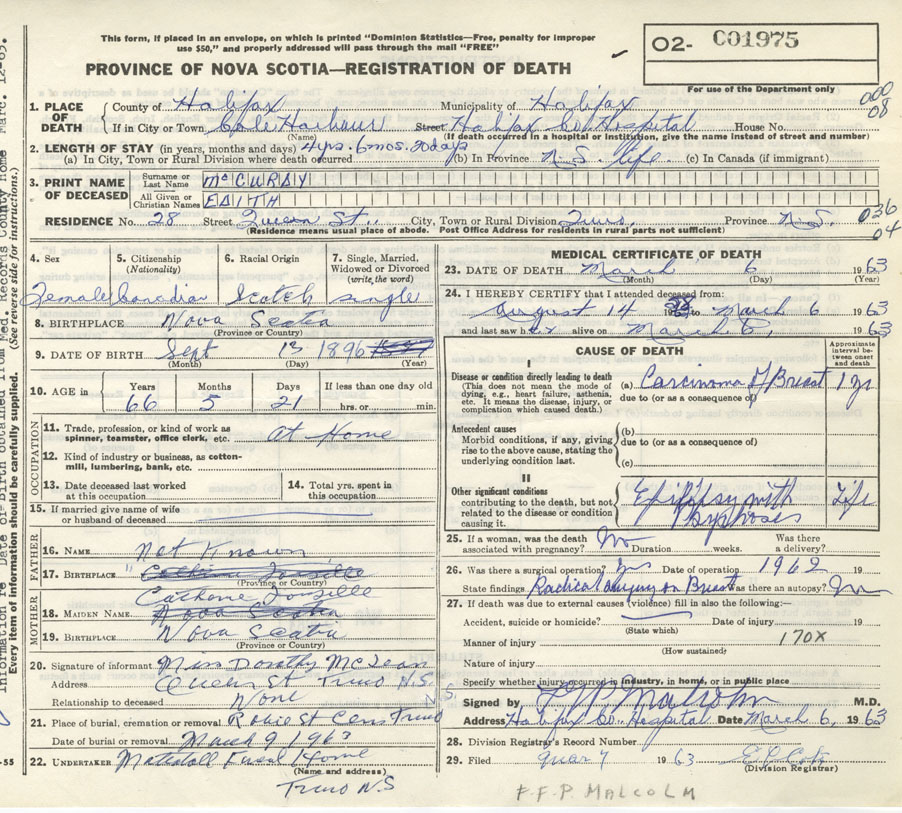 This form, if placed in an envelope, on which is printed "Dominion Statistics—Free, penalty for improper
use $50," and properly addressed will pass through the mail "FREE"
O2- C01975
PROVINCE OF NOVA SCOTIA—REGISTRATION OF DEATH
For use of the Department only
1. PLACE OF DEATH County of Halifax (Name) Municipality of Halifax 000 08
If in City or Town Cole Harbour Street Halifax Co Hospital House No.
(If death occurred in a hospital or institution, give the name instead of street and number)
2. LENGTH OF STAY (in years, months and days) 4 yrs. 6 mos. 20 days
(a) In City, Town or Rural Division where death occurred (b) In Province N.S. life. (c) In Canada (if immigrant)
3. PRINT NAME OF DECEASED Surname or Last Name McCURDY
All Given or Christian Names EDITH
RESIDENCE No. 28 Street Queen St. City, Town or Rural Division Truro, Province N.S. 036 04
(Residence means usual place of abode. Post Office Address for residents in rural parts not sufficient)
4. Sex 5. Citizenship (Nationality) 6. Racial Origin 7. Single, Married, Widowed or Divorced (write the word)
Female Canadian Scotch single
8. BIRTHPLACE Nova Scotia
(Province or Country)
9. DATE OF BIRTH Sept 13 1896
(Month) (Day) (Year)
10. AGE in Years Months Days If less than one day old
66 5 21 hrs. or min.
OCCUPATION
11. Trade, profession, or kind of work as spinner, teamster, office clerk, etc. at Home
12. Kind of industry or business, as cotton-mill, lumbering, bank, etc.
13. Date deceased last worked at this occupation
14. Total yrs. spent in this occupation
15. If married give name of wife or husband of deceased
FATHER
16. NAME Not Known
17. BIRTHPLACE "
(Province or Country)
MOTHER
18. MAIDEN NAME Nova Scotia
19. BIRTHPLACE Nova Scotia
(Province or Country)
20. Signature of informant Miss Dorothy McLean
Address Queen St Truro N.S.
Relationship to deceased None
21. Place of burial, cremation or removal Robie St Cem Truro N.S.
Date of burial or removal March 9 1963
22. UNDERTAKER Mattatall Home
(Name and address)
Truro N.S
MEDICAL CERTIFICATE OF DEATH
23. DATE OF DEATH March 6 1963
(Month) (Day) (Year)
24. I HEREBY CERTIFY that I attended deceased from:
August 14 19 to March 6 1963
and last saw her alive on March 6, 1963
CAUSE OF DEATH
Approximate interval between onset and death
I
Disease or condition directly leading to death
(This does not mean the mode of dying, e.g., heart failure, asthenia, etc. It means the disease, injury, or complication which caused death.)
(a) Carcinoma of Breast 1 yr
due to (or as a consequence of)
Antecedent causes
Morbid conditions, if any, giving rise to the above cause, stating the underlying condition last.
(b)
due to (or as a consequence of)
(c)
II
Other significant conditions
contributing to the death, but not related to the disease or condition causing it.
Epilepsy with Psychoses Life
25. If a woman, was the death associated with pregnancy? No Duration weeks. Was there a delivery?
26. Was there a surgical operation? yes Date of operation 1962 19
State findings Radical surgery on Breast Was there an autopsy? No
27. If death was due to external causes (violence) fill in also the following:—
Accident, suicide or homicide? Date of injury 19
(State which)
Manner of injury 170X
(How sustained)
Nature of injury
Specify whether injury occurred in industry, in home, or in public place
Signed by F.F.P. Malcolm M.D.
Address Halifax Co. Hospital Date March 6, 1963
28. Division Registrar's Record Number
29. Filed Mar 7 1963
(Division Registrar)
F.F.P. MALCOLM
Information re Date of Birth obtained from Med. Records County Home Marc. 12-63.
Every item of information should be carefully supplied. (See reverse side for instructions.)
-55